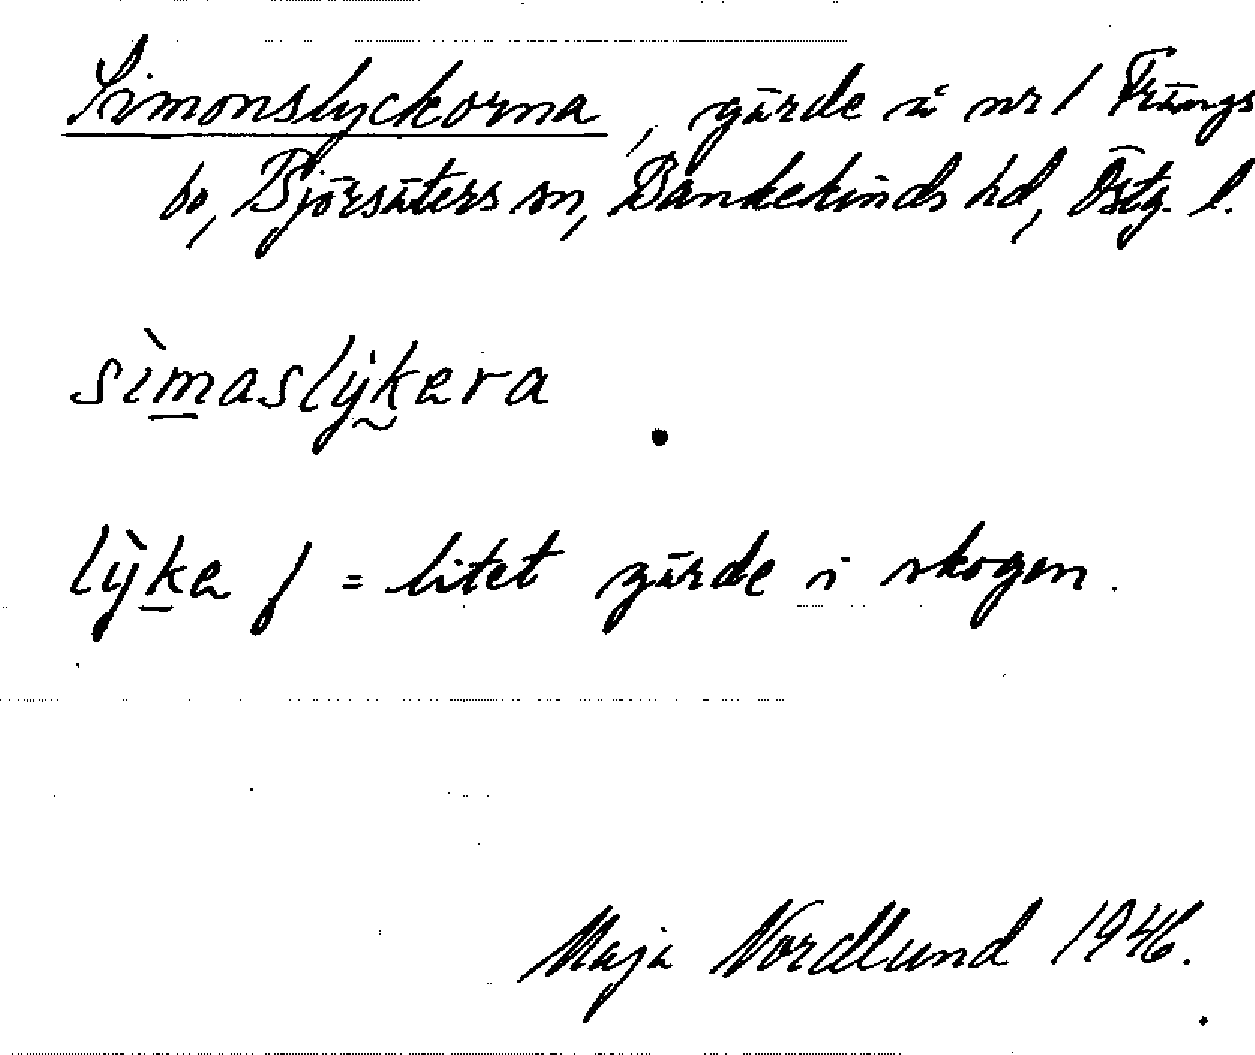 Simonslyckorna, gärde å nr 1 Frängs
bo, Björsäters sn, Bankekinds hd, Östg. l.
sìmaslỳkera
lỳke f = litet gärde i skogen.
Maja Nordlund 1946.